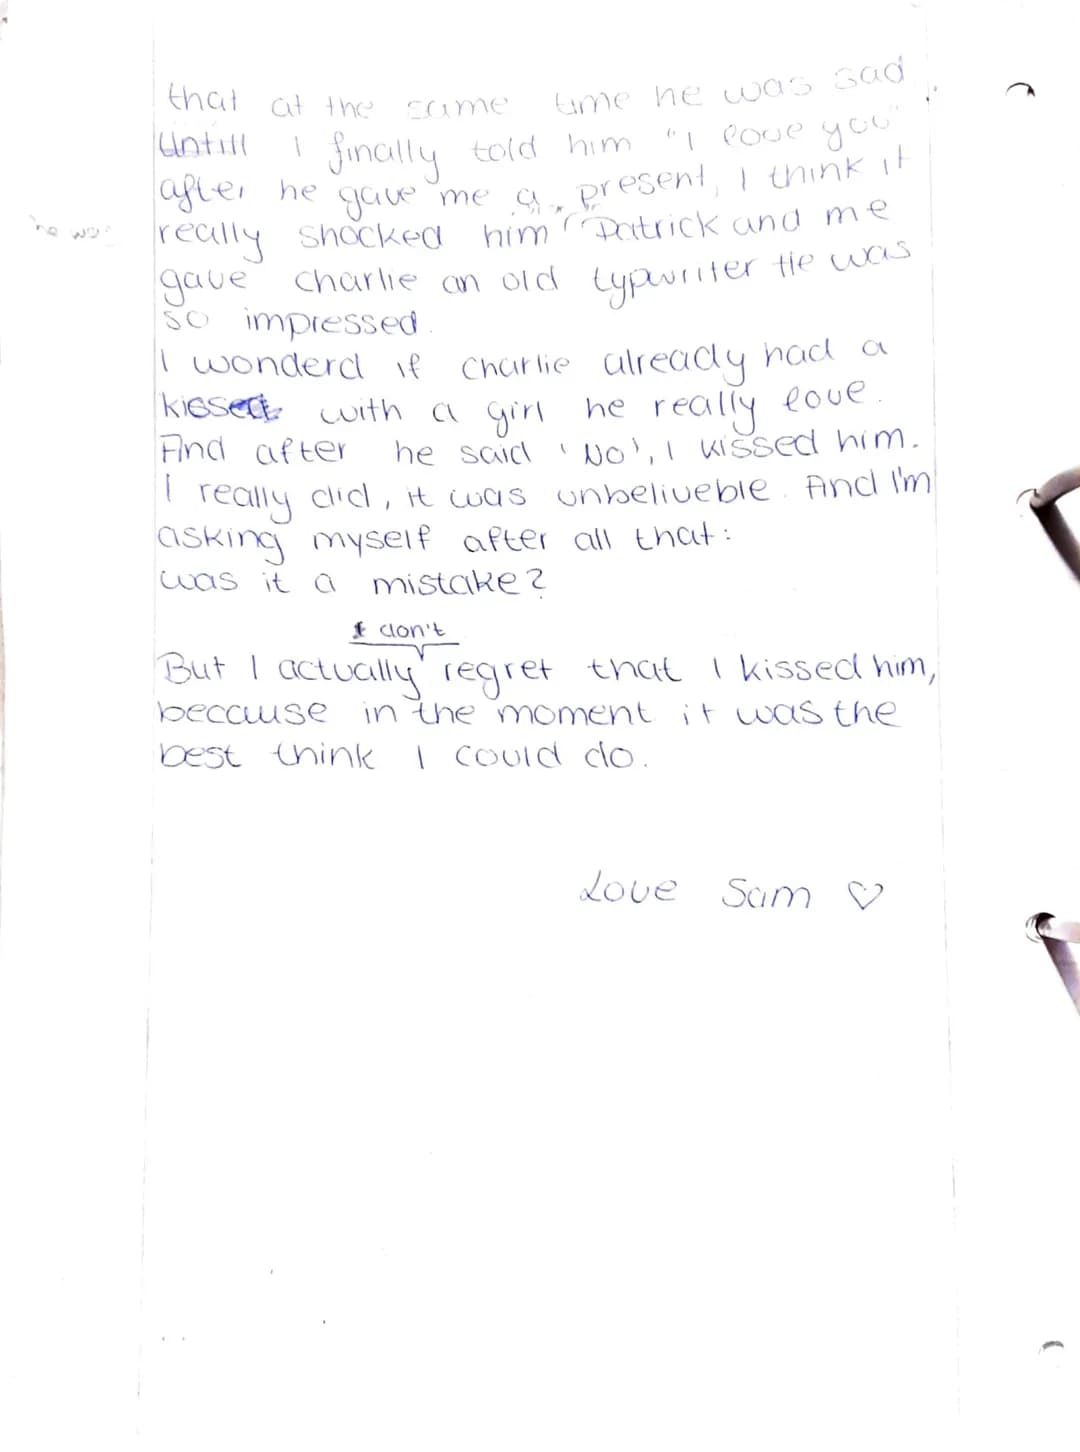 that at the same time he was sad
Untill I finally told him "I love you"
after he gave me a present, I think it
he was really shocked him Patrick and me
gave Charlie an old typwriter He was
so impressed.
I wonderd if Charlie already had a
kissed with a girl he really love.
And after he said 'No', I kissed him.
I really did, it was unbeliueble. And I'm
asking myself after all that:
was it a mistake?
I don't
But I actually regret that I kissed him,
because in the moment it was the
best think I could do.
Love Sam ♡